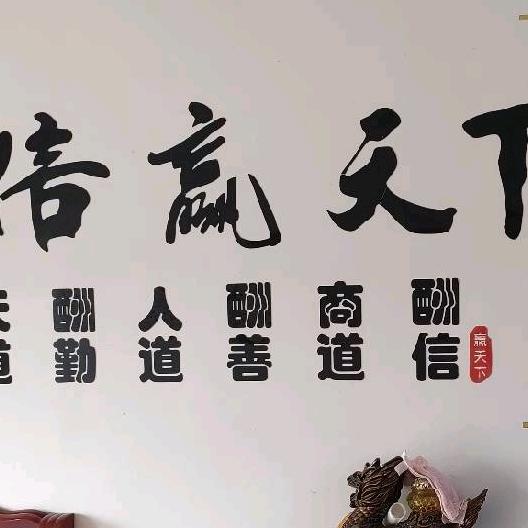 信赢天下
天道酬勤
人道酬善
商道酬信
赢天下